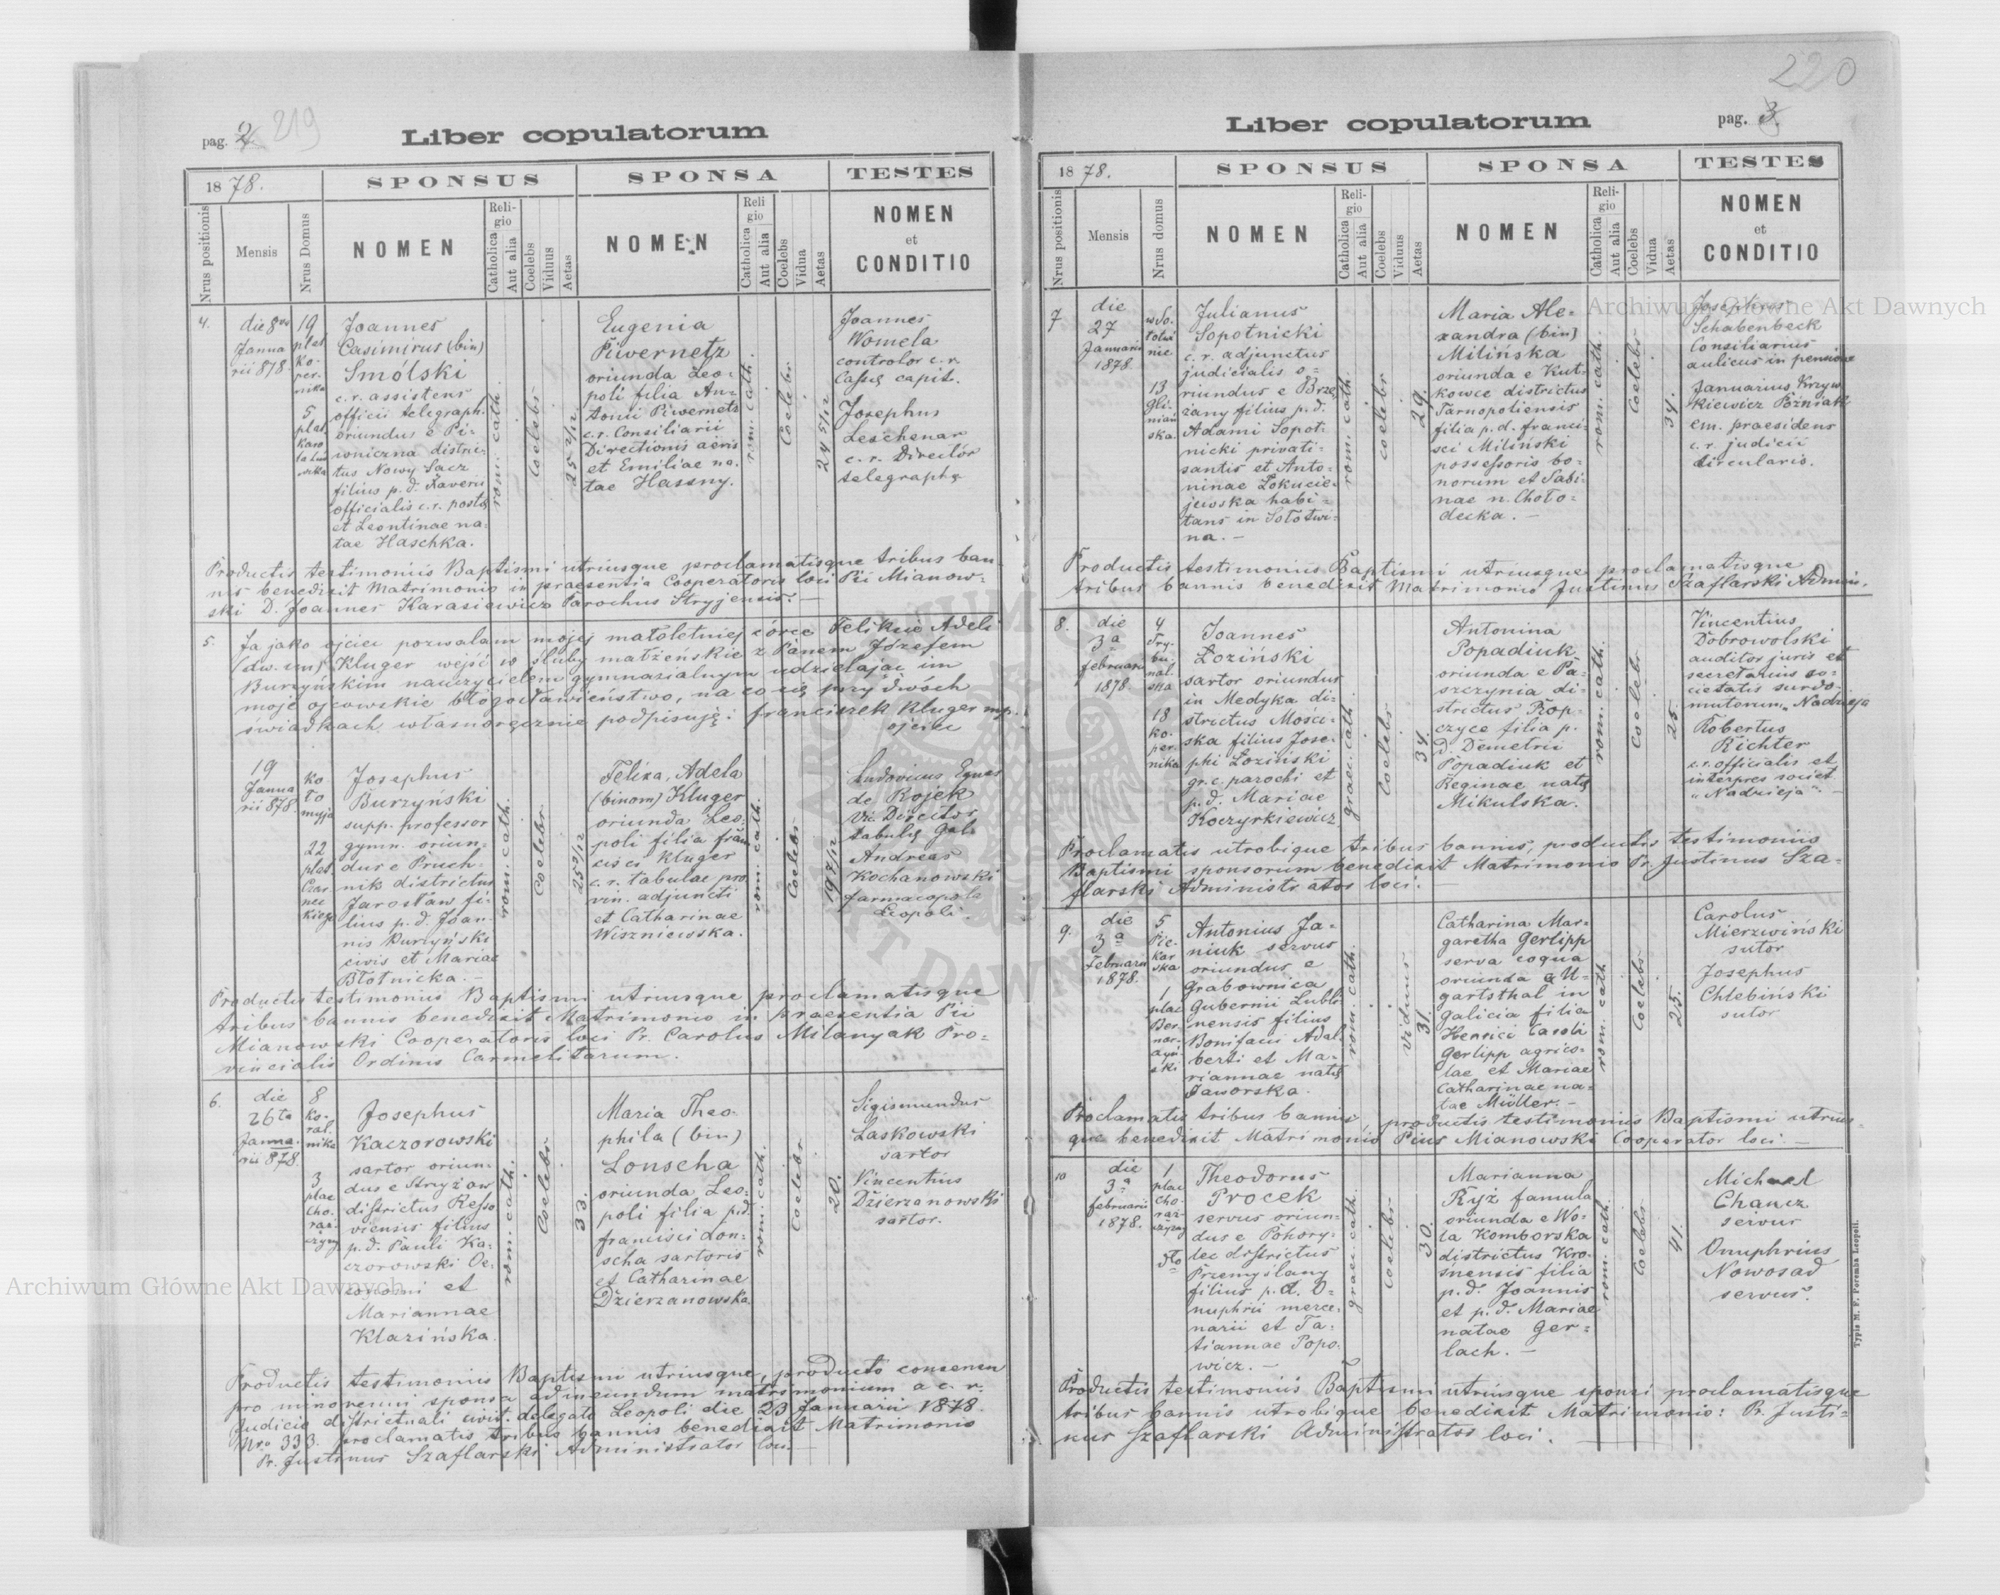 pag. 2 219
Liber copulatorum
1878.
SPONSUS
SPONSA
TESTES
Nrus positionis
Mensis
Nrus Domus
NOMEN
Religio
Catholica
Aut alia
Coelebs
Viduus
Aetas
NOMEN
Religio
Catholica
Aut alia
Coelebs
Vidua
Aetas
NOMEN
et
CONDITIO
4.
die 8va
Janua
rii 878.
19
plac
Ko-
per-
nika
5
plac
Joannes
Casimirus (bin)
Smólski
c.r. assistens
officii telegraph.
oriundus e Pi-
wniczna distric-
tus Nowy Sacz
filius p.d. Xaverii
officialis c.r. postę
et Leontinae na-
tae Haschka.
rom. cath.
Coelebs
25 2/12
Eugenia
Piwernetz
oriunda Leo-
poli filia An-
tonii Piwernetz
c.r. Consiliarii
Directionis aeris
et Emiliae na-
tae Hassny.
rom. cath.
Coelebs
24 5/12
Joannes
Womela
controlor c.r.
Cassę capit.
Josephus
Leschenar
c.r. Director
telegraphę
Productis testimoniis Baptismi utriusque proclamatisque tribus ban-
nis benedixit Matrimonio in praesentia Cooperatoris loci Pii Mianow-
ski D. Joannes Karasiewicz Parochus Stryjensis. —
5.
Ja jako ojciec pozwalam mojej małoletniej córce Feliksie Adeli
(dw. im.) Kluger wejść w śluby małżeńskie z Panem Józefem
Burzyńskim nauczycielem gymnazialnym udzielając im
moje ojcowskie błogosławieństwo, na co się przy dwóch
świadkach własnoręcznie podpisuję: Franciszek Kluger mp.
ojciec
19
Janua
rii 878
Ko
ło
myja
22
plac
Czar
nec
kiego
Josephus
Burzyński
supp. professor
gymn. oriun-
dus e Pruch-
nik districtus
Jarosław fi-
lius p.d. Joan-
nis Burzyński
civis et Mariae
Błotnicka. —
rom. cath.
Coelebs
Felixa, Adela
(binom) Kluger
oriunda Leo-
poli filia fran
cisci Kluger
c.r. tabulae pro
vin. adjuncti
et Catharinae
Wiszniewska.
rom. cath.
Coelebs
Ludovicus Eques
de Rojek
Vic. Director
tabulę Gal.
Andreas
Kochanowski
farmacopola
Leopoli.
Productis testimoniis Baptismi utriusque proclamatisque
tribus bannis benedixit Matrimonio in praesentia Pii
Mianowski Cooperatoris loci Pr. Carolus Milanyak Pro-
vincialis Ordinis Carmelitarum.
6.
die
26ta
Janua-
rii 878
8
Ko-
ral-
nika
3
plac
Cho-
raz-
czyzny
Josephus
Kaczorowski
sartor oriun-
dus e Stryżow
districtus Resso
viensis filius
p.d. Pauli Ka-
czorowski Oe-
conomi et
Mariannae
Klazińska.
rom. cath.
Coelebs
33.
Maria Theo-
phila (bin)
Lonscha
oriunda Leo-
poli filia p.d.
francisci Lon-
scha sartoris
et Catharinae
Dzierzanowska.
rom. cath.
Coelebs
20.
Sigismundus
Laskowski
sartor
Vincentius
Dzierzanowski
sartor.
Productis testimoniis Baptismi utriusque, producto consensu
pro minorenni sponsa ad ineundum matrimonium a c.r.
Judicio districtuali civit. delegato Leopoli die 23 Januarii 1878.
Nro 333. proclamatis tribus bannis benedixit Matrimonio
Pr. Justinus Szaflarski Administrator loci. —
220
Liber copulatorum
pag. 3.
1878.
SPONSUS
SPONSA
TESTES
Nrus positionis
Mensis
Nrus domus
NOMEN
Religio
Catholica
Aut alia
Coelebs
Viduus
Aetas
NOMEN
Religio
Catholica
Aut alia
Coelebs
Vidua
Aetas
NOMEN
et
CONDITIO
7
die
27
Januarii
1878.
w So-
łotwi
nie
13
Gli-
niań
ska.
Julianus
Sopotnicki
c.r. adjunctus
judicialis o-
riundus e Brze-
zany filius p.d.
Adami Sopot-
nicki privati-
santis et Anto-
ninae Łokucie-
jewska habi-
tans in Sołotwi-
na. —
rom. cath.
coelebs
29.
Maria Ale-
xandra (bin)
Milińska
oriunda e Kut-
kowce districtus
Tarnopoliensis
filia p.d. franci-
sci Miliński
possessoris bo-
norum et Sabi-
nae n. Choło-
decka. —
rom. cath.
Coelebs
34.
Josephus
Schabenbeck
Consiliarius
aulicus in pensione
Januarius Krzyw
kiewicz Poźniak
em. praesidens
c.r. judicii
circularis.
Productis testimoniis Baptismi utriusque proclamatisque
tribus bannis benedixit Matrimonio Justinus Szaflarski Admin.
8.
die
3a
februarii
1878.
4
Try-
bu-
nal-
ska
18
Ko-
per-
nika
Joannes
Łoziński
sartor oriundus
in Medyka di-
strictus Mości-
ska filius Jose-
phi Łoziński
gr.c. parochi et
p.d. Mariae
Koczyrkiewicz
graec. cath.
Coelebs
34.
Antonina
Popadiuk
oriunda e Pa-
szczynia di-
strictus Rop-
czyce filia p.
d. Demetrii
Popadiuk et
Reginae natę
Mikulska.
rom. cath.
Coelebs
25.
Vincentius
Dobrowolski
auditor juris et
secretarius so-
cietatis surdo-
mutorum „Nadzieja
Robertus
Richter
c.r. officialis et
interpres societ.
„Nadzieja". —
Proclamatis utrobique tribus bannis, productis testimoniis
Baptismi sponsorum benedixit Matrimonio Pr. Justinus Sza-
flarski Administrator loci. —
9.
die
3a
Februarii
1878.
5
Pie-
kar
ska
1
plac
Ber-
nar-
dyń-
ski
Antonius Ja-
niuk servus
oriundus e
Grabownica
Gubernii Lubli
nensis filius
Bonifacii Adal-
berti et Ma-
riannae natę
Jaworska.
rom. cath.
viduus
31.
Catharina Mar-
garetha Gerlipp
serva coqua
oriunda e U-
gartsthal in
Galicia filia
Henrici Caroli
Gerlipp agrico-
lae et Mariae
Catharinae na-
tae Müller. —
rom. cath
Coelebs
25.
Carolus
Mierzwiński
sutor
Josephus
Chlebiński
sutor
Proclamatis tribus bannis, productis testimoniis Baptismi utrius-
que benedixit Matrimonio Pius Mianowski Cooperator loci. —
10
die
3a
februarii
1878.
1
plac
Cho-
raz-
czyzny
Theodorus
Procek
servus oriun-
dus e Pohory-
lec districtus
Przemyślany
filius p.d. O-
nuphrii merce-
narii et Ta-
tiannae Popo-
wicz. —
graec. cath.
Coelebs
30.
Marianna
Ryż famula
oriunda e Wo-
la Komborska
districtus Kro-
snensis filia
p.d. Joannis
et p.d. Mariae
natae Ger-
lach. —
rom. cath.
Coelebs
41.
Michael
Chancz
servus
Onuphrius
Nowosad
servus.
Productis testimoniis Baptismi utriusque sponsi proclamatisque
tribus bannis utrobique benedixit Matrimonio: Pr. Justi-
nus Szaflarski Administrator loci.
Typis M. F. Poremba Leopoli.
Archiwum Główne Akt Dawnych
Archiwum Główne Akt Dawnych